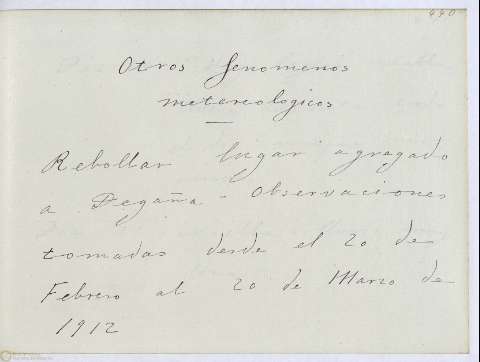 440
Otros fenomenos
metereologicos
Rebollar lugar agregado
a Degaña - Observaciones
tomadas desde el 20 de
Febrero al 20 de Marzo de
1912